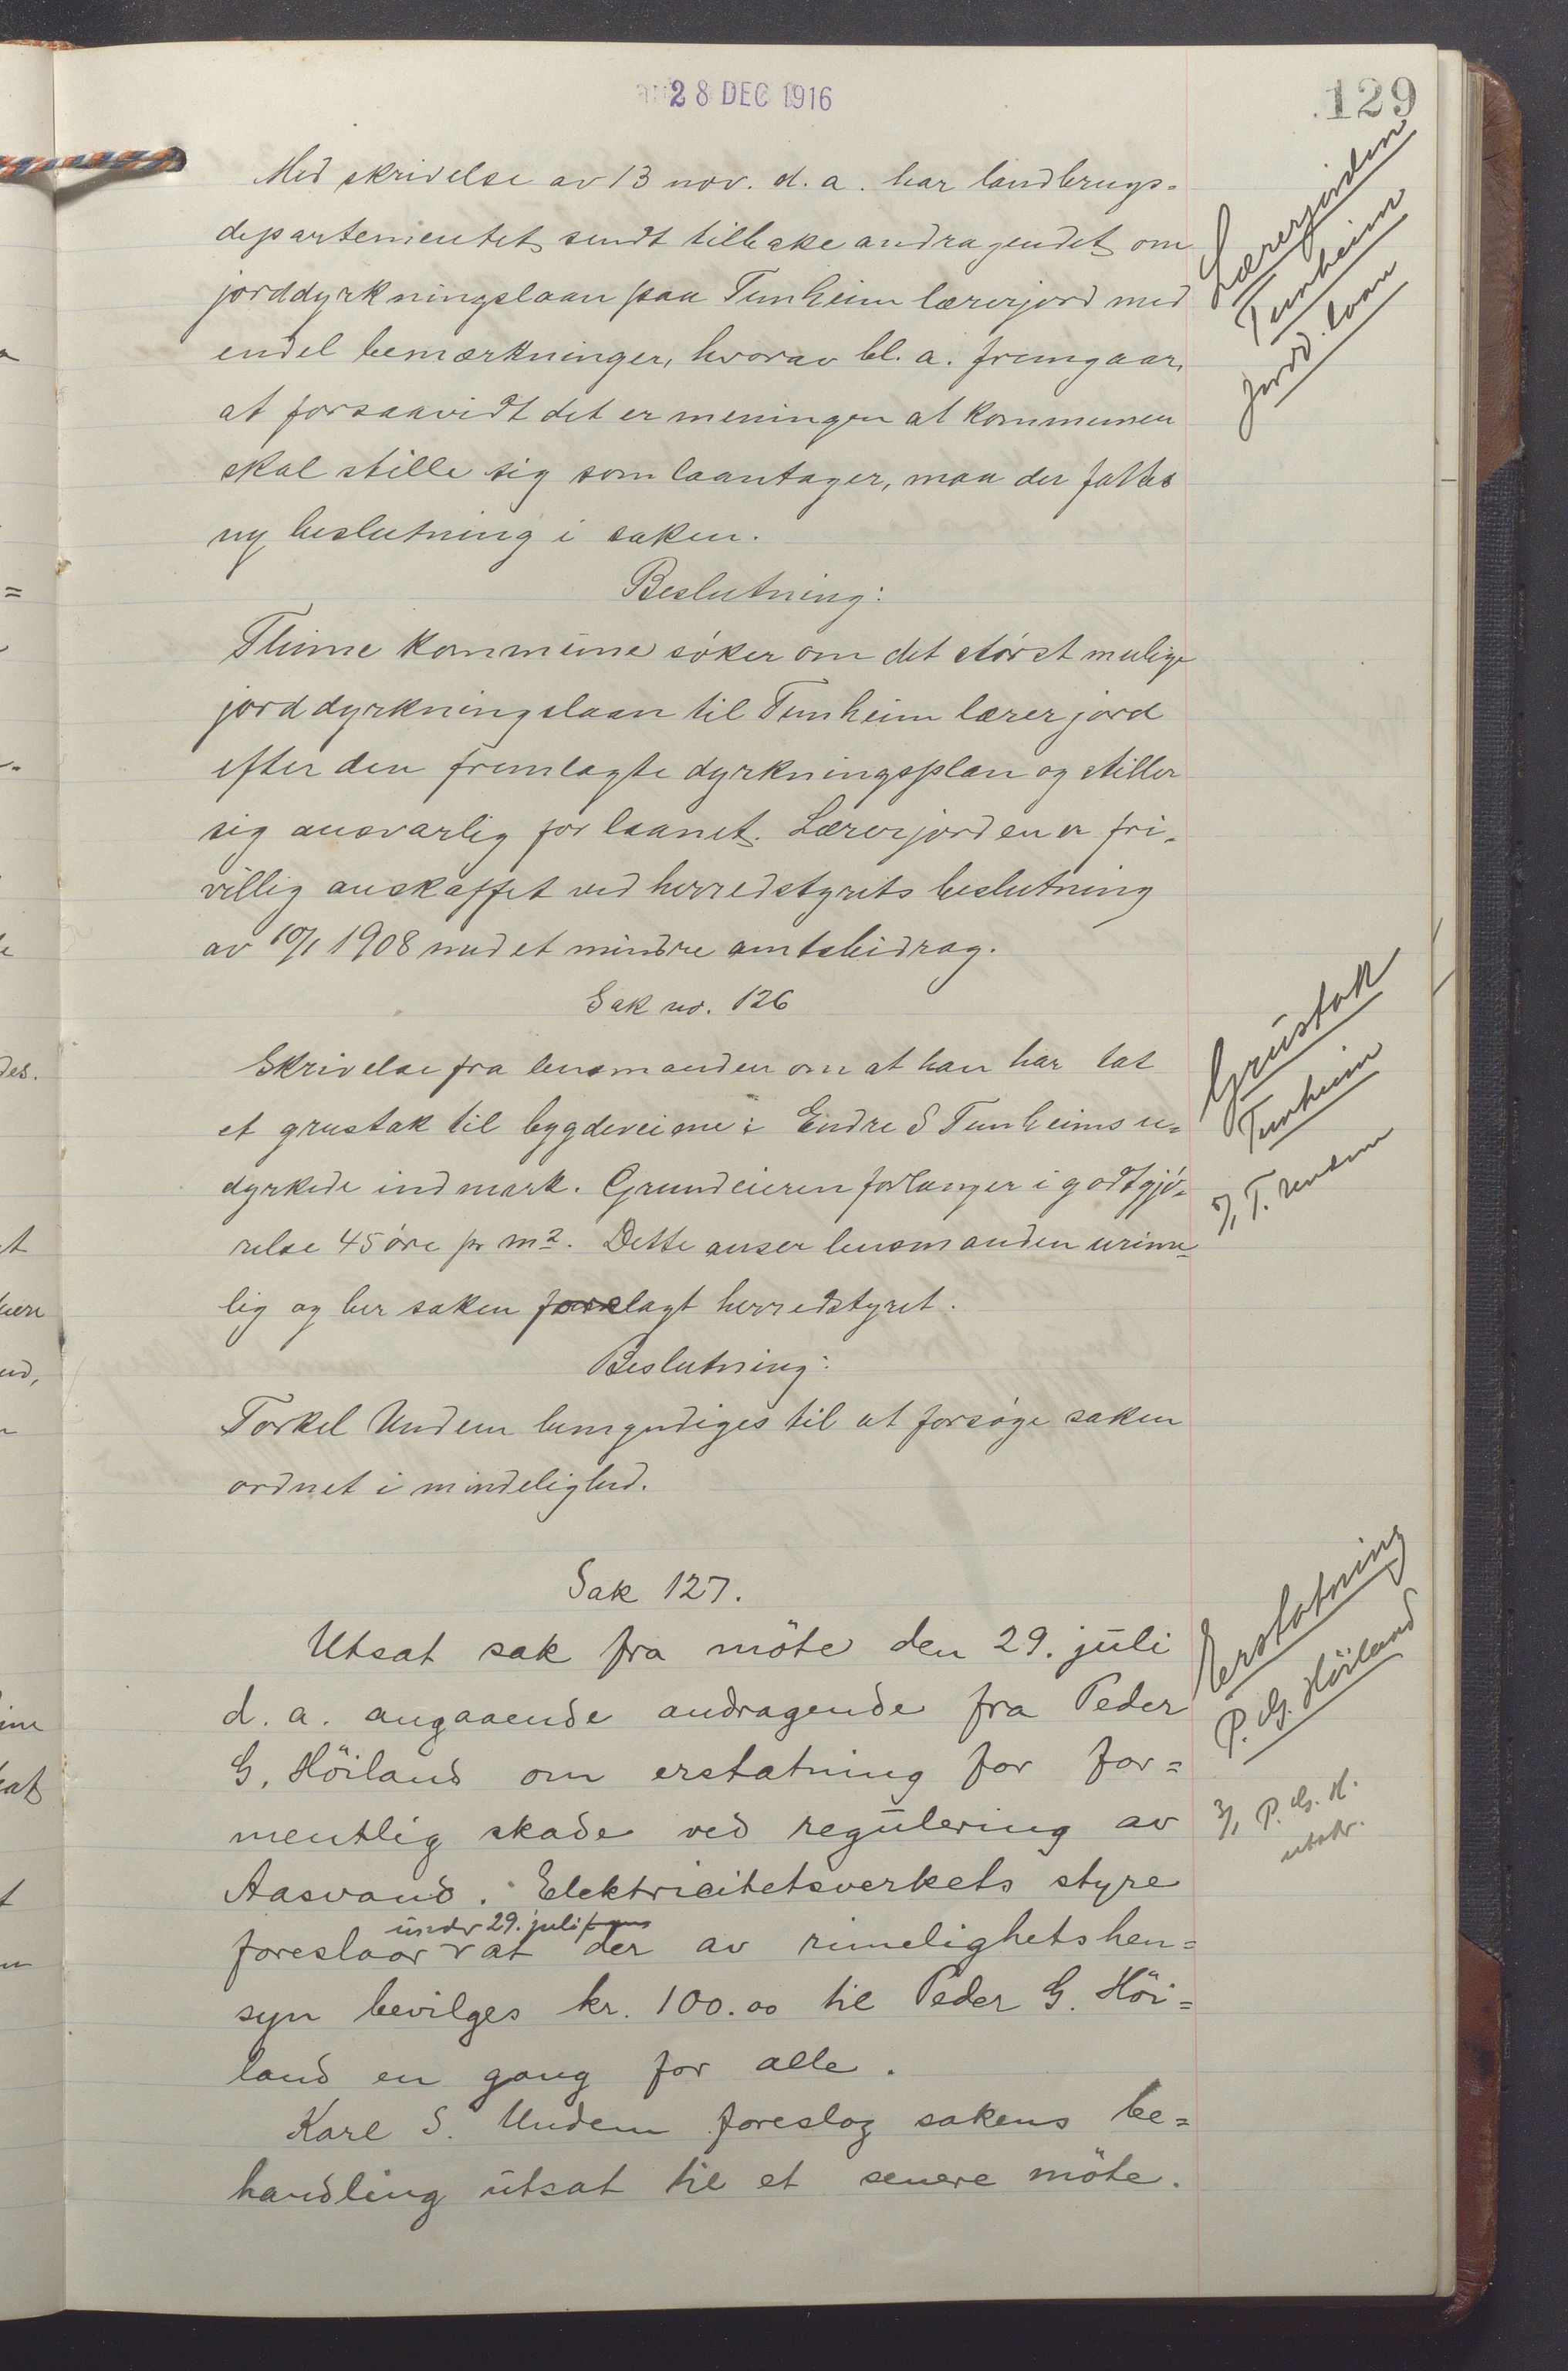 28 DEC 1916
129
Med skrivelse av 13 nov. d. a. har landbrugs-
departementet sendt tilbake andragendet om
jorddyrkningslaan paa Tunheim lærerjord med
endel bemærkninger, hvorav bl. a. fremgaar,
at forsaavidt det er meningen at kommunen
skal stille sig som laantager, maa der fattes
ny beslutning i saken.
Lærerjorden
Tunheim
jordd. laan
Beslutning:
Thime kommune søker om det størst mulige
jorddyrkningslaan til Tunheim lærerjord
efter den fremlagte dyrkningsplan og stiller
sig ansvarlig for laanet. Lærerjorden er fri-
villig anskaffet ved herredstyrets beslutning
av 10/1 1908 med et mindre amtsbidrag.
Sak no. 126
Skrivelse fra lensmanden om at han har tat
et grustak til bygdeveiene i Endre S Tunheims u=
dyrkede indmark. Grundeieren forlanger i godtgjø-
relse 45 øre pr m2. Dette anser lensmanden urime-
lig og ber saken forelagt herredstyret.
Grustak
Tunheim
5/1 T. Undem
Beslutning:
Torkel Undem bemyndiges til at forsøge saken
ordnet i mindelighed.
Sak 127.
Utsat sak fra möte den 29. juli
d. a. angaaende andragende fra Peder
G. Höiland om erstatning for for=
mentlig skade ved regulering av
Aasvand. Elektricitetsverkets styre
under 29. juli
foreslaar at der av rimelighetshen=
syn bevilges kr. 100.00 til Peder G. Höi=
land en gang for alle.
Karl S. Undem foreslog sakens be=
handling utsat til et senere möte.
Erstatning
P. G. Höiland
3/1 P. G. H.
utskr.